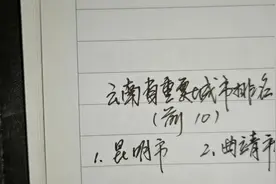 云南省重要城市排名
(前10)
1、昆明市 2、曲靖市